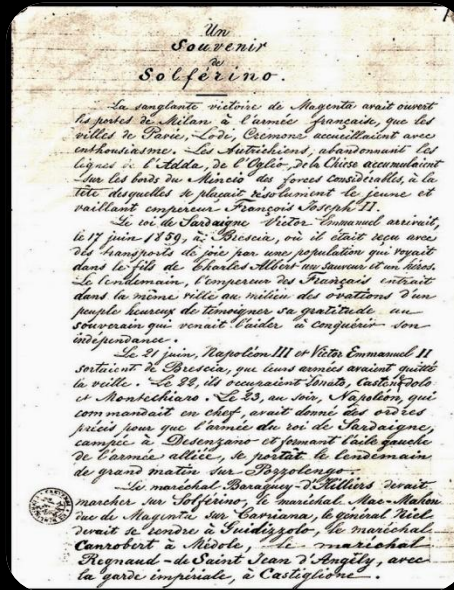 Un
Souvenir
de
Solférino.
La sanglante victoire de Magenta avait ouvert
les portes de Milan à l'armée française, que les
villes de Pavie, Lodi, Crémone accueillaient avec
enthousiasme. Les Autrichiens, abandonnant les
lignes de l'Adda, de l'Oglio, de la Chiese accumulaient
sur les bords du Mincio des forces considérables, à la
tête desquelles se plaçait résolument le jeune et
vaillant empereur François Joseph II.
Le roi de Sardaigne Victor Emmanuel arrivait,
le 17 juin 1859, à Brescia, où il était reçu avec
des transports de joie par une population qui voyait
dans le fils de Charles Albert un sauveur et un héros.
Le lendemain, l'empereur des Français entrait
dans la même ville au milieu des ovations d'un
peuple heureux de témoigner sa gratitude au
souverain qui venait l'aider à conquérir son
indépendance.
Le 21 juin, Napoléon III et Victor Emmanuel II
sortaient de Brescia, que leurs armées avaient quitté
la veille. Le 22, ils occupaient Lonato, Castenedolo
et Montechiaro. Le 23, au soir, Napoléon, qui
commandait en chef, avait donné des ordres
précis pour que l'armée du roi de Sardaigne,
campée à Desenzano et formant l'aile gauche
de l'armée alliée, se portât le lendemain
de grand matin sur Pozzolengo.
Le maréchal Baraguey-d'Hilliers devait
marcher sur Solférino, le maréchal Mac-Mahon
duc de Magenta sur Cavriana, le général Niel
devait se rendre à Guidizzolo, le maréchal
Canrobert à Médole, le maréchal
Regnaud-de Saint Jean d'Angély, avec
la garde impériale, à Castiglione.